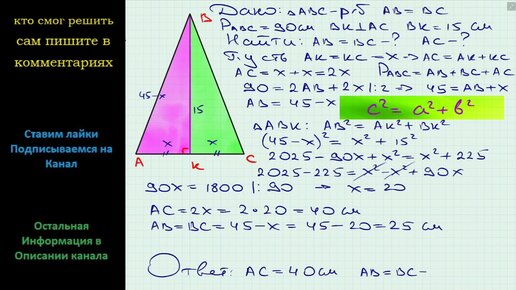 кто смог решить
сам пишите в
комментариях
Ставим лайки
Подписываемся на
Канал
Остальная
Информация в
Описании канала
B
45-x
15
x
x
A
K
C
Дано: △ABC-р/б AB=BC
P_ABC=90см BK⊥AC BK=15 см
Найти: AB=BC-? AC-?
Пусть AK=KC=x→AC=AK+KC
AC=x+x=2x P_ABC=AB+BC+AC
90=2AB+2x|:2→45=AB+x
AB=45-x
c²=a²+b²
△ABK: AB²=AK²+BK²
(45-x)²=x²+15²
2025-90x+x²=x²+225
2025-225=x²-x²+90x
90x=1800|:90 → x=20
AC=2x=2·20=40см
AB=BC=45-x=45-20=25 см
Ответ: AC=40см AB=BC-